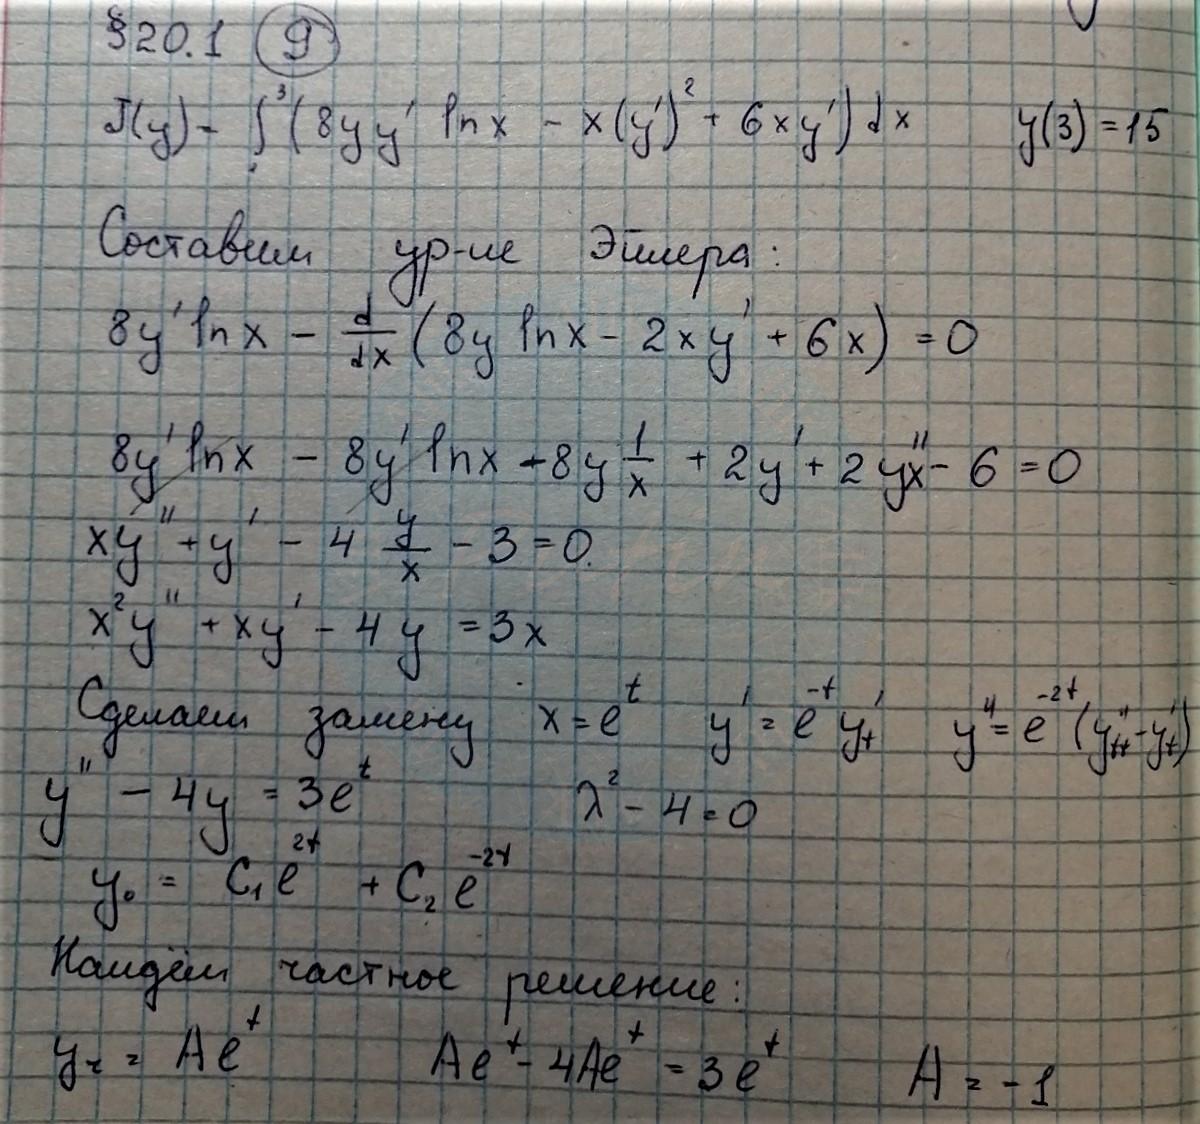 §20.1 9
J(y) - ∫₁³ (8yy' ln x - x(y')² + 6xy') dx y(3) = 15
Составим ур-ие Эйлера:
8y' ln x - d/dx (8y ln x - 2xy' + 6x) = 0
8y' ln x - 8y' ln x - 8y 1/x + 2y' + 2y''x - 6 = 0
xy'' + y' - 4 y/x - 3 = 0.
x²y'' + xy' - 4y = 3x
Сделаем замену x = e^t y' = e^(-t) y'_t y'' = e^(-2t) (y''_tt - y'_t)
y'' - 4y = 3e^t λ² - 4 = 0
y₀ = C₁e^(2t) + C₂e^(-2t)
Найдём частное решение:
y_ч = Ae^t Ae^t - 4Ae^t = 3e^t A = -1